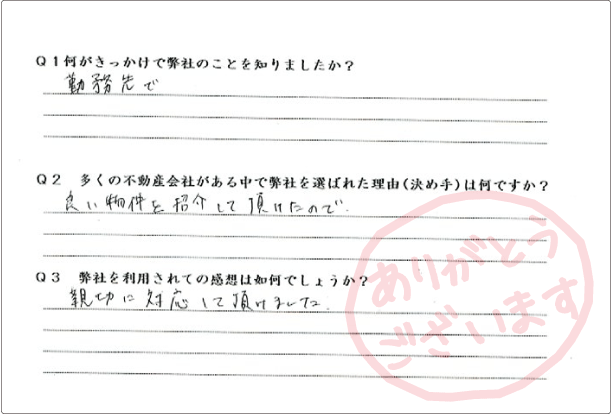 Q1何がきっかけで弊社のことを知りましたか?
勤務先で
Q2 多くの不動産会社がある中で弊社を選ばれた理由(決め手)は何ですか?
良い物件を紹介して頂けたので.
Q3 弊社を利用されての感想は如何でしょうか?
親切に対応して頂けました.
ありがとう
ございます